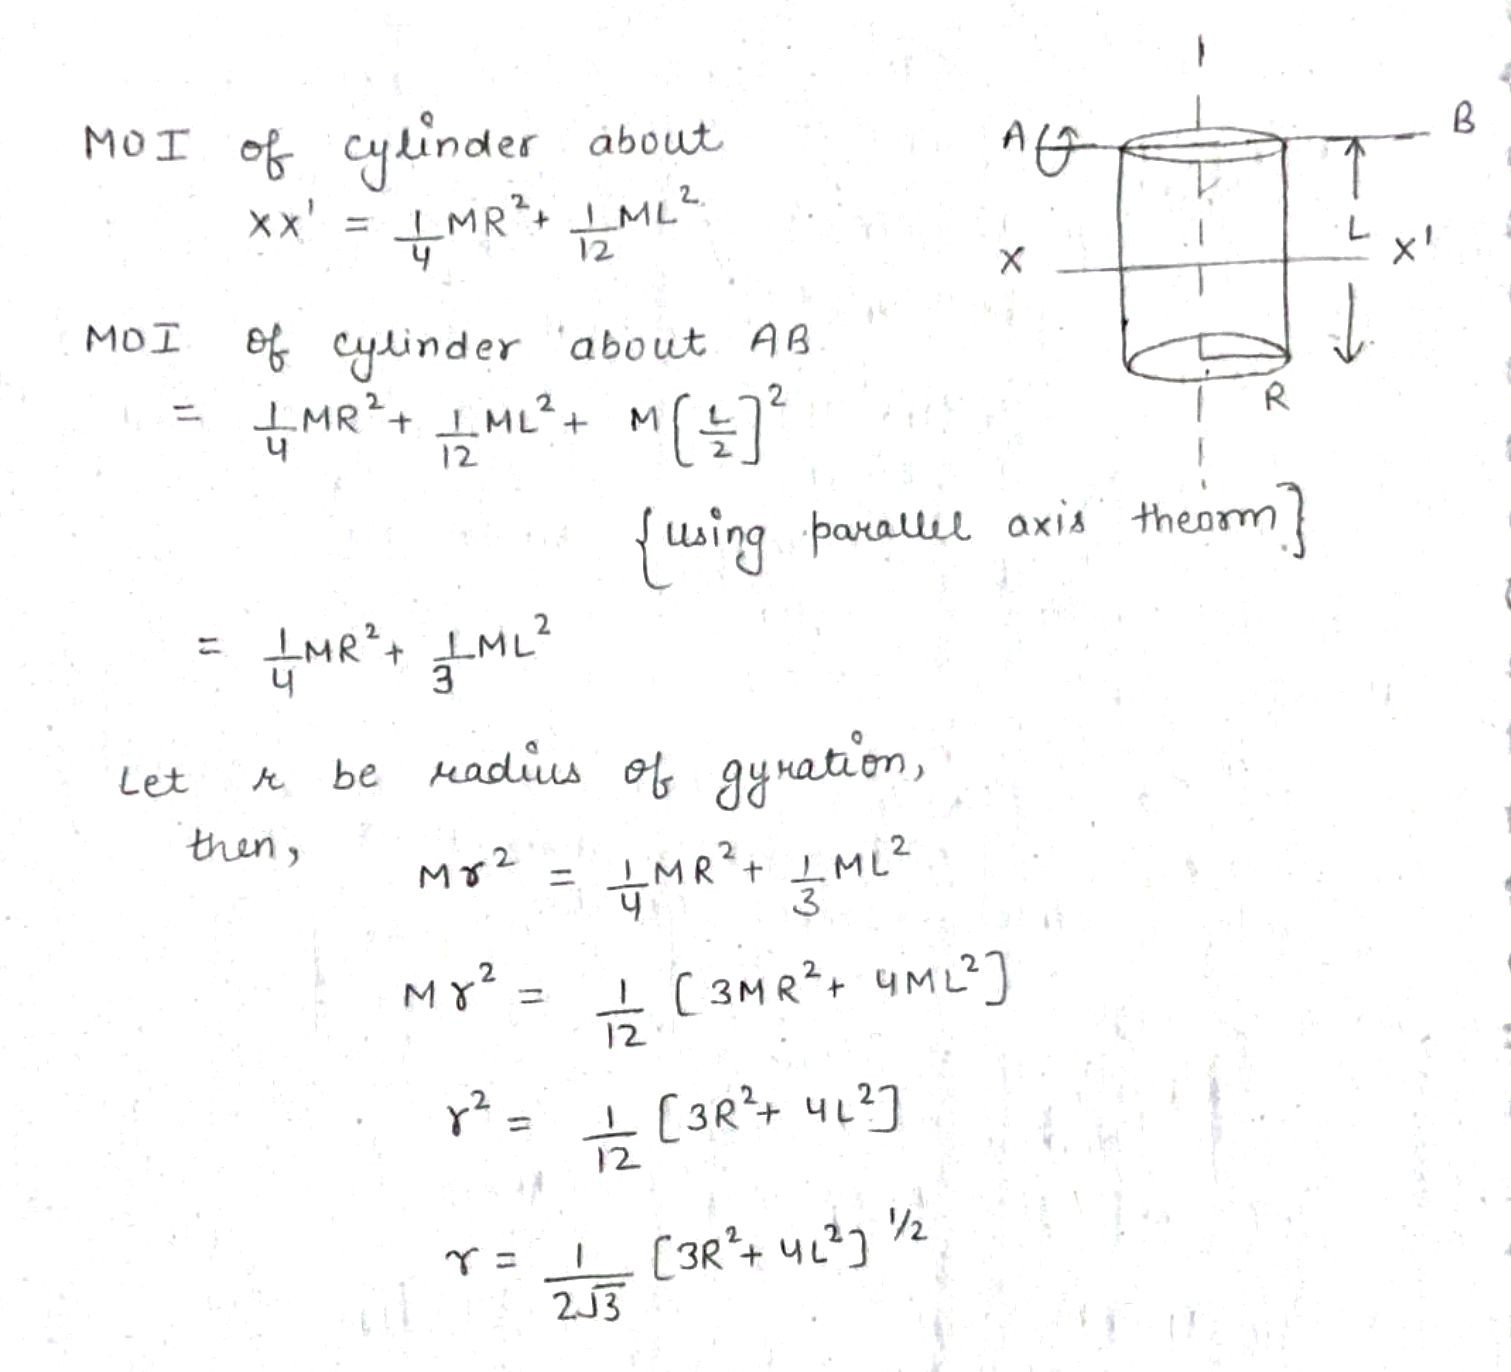 MOI of cylinder about
XX' = 1/4 MR² + 1/12 ML²
MOI of cylinder about AB
= 1/4 MR² + 1/12 ML² + M[L/2]²
{using parallel axis theorm}
= 1/4 MR² + 1/3 ML²
Let r be radius of gyration,
then,
Mr² = 1/4 MR² + 1/3 ML²
Mr² = 1/12 [3MR² + 4ML²]
r² = 1/12 [3R² + 4L²]
r = 1/2√3 [3R² + 4L²]^1/2
A
B
L
X
X'
R